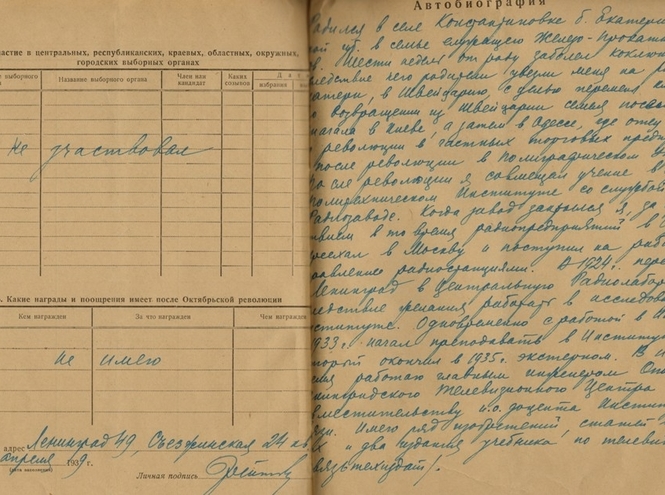 астие в центральных, республиканских, краевых, областных, окружных,
городских выборных органах
выборного
Название выборного органа
Член или
кандидат
Каких
созывов
Дат
избрания
Не участвовал
. Какие награды и поощрения имеет после Октябрьской революции
Кем награжден
За что награжден
Чем награ
не имею
адрес Ленинград 49, Съезжинская 24 кв
апреля 1939 г.
Личная подпись
Автобиография
Родился в селе Константиновке б. Екатери
ой губ. в семье служащего Железо-прокатн
Шести недель от роду заболел коклю
вследствие чего родители увезли меня на ро
матери, в Швейцарию, с целью перемены кл
возвращении из Швейцарии семья посел
начала в Киеве, а затем в Одессе, где отец
революции в частных торговых предпр
после революции в полиграфическом
После революции я совмещал учение в
политехническом Институте со службой
Радиозаводе. Когда завод закрылся я, за
ствием в то время радиопредприятий в О
переехал в Москву и поступил на рабо
правлению радиостанциями. В 1924 г. пере
Ленинград в Центральную Радиолабор
вследствие желания работать в исследов
институте. Одновременно с работой в И
1933 г. начал преподавать в Институ
торый окончил в 1935 г. экстерном. В н
работаю главным инженером Оп
Ленинградского Телевизионного Центра
совместительству и.о. доцента Инстит
Имею ряд изобретений, статей
и два издания учебника по телеви
Связьтехиздат/.